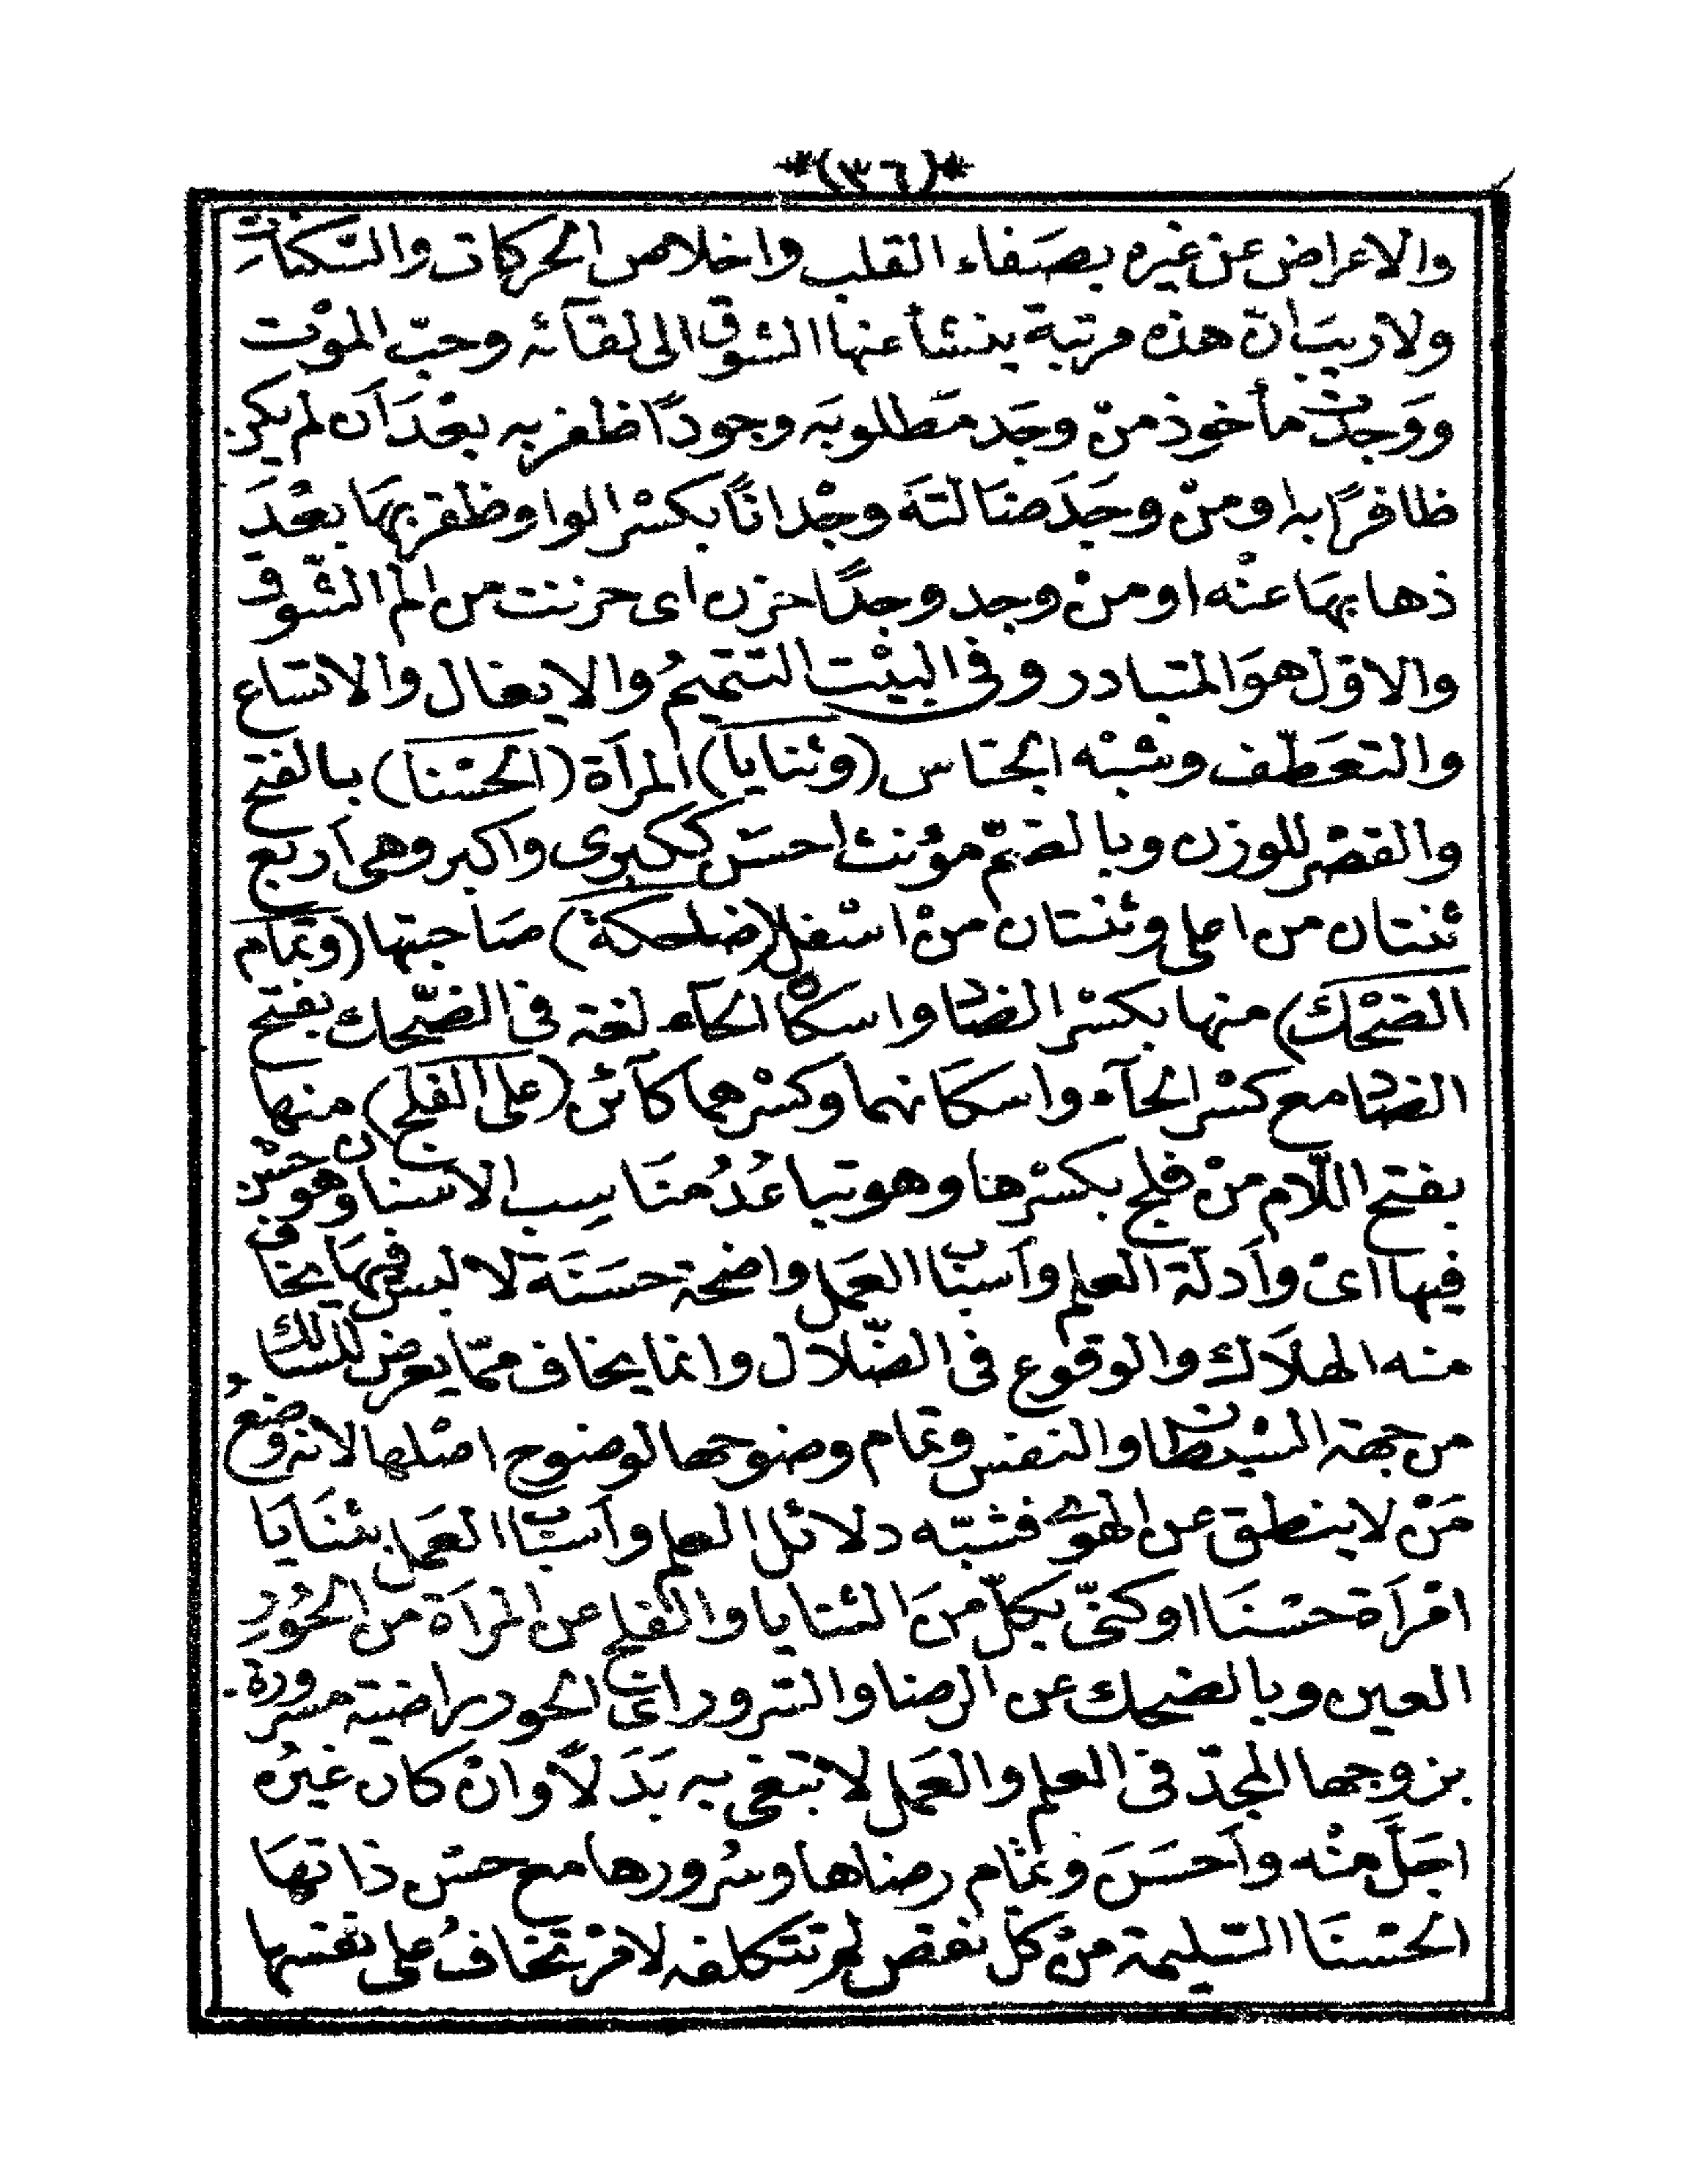 *(٣٦)*
والاعراض عن غيره بصَفاء القلب واخلاص الحركات والسّكناتِ
ولا ريبَ انّ هذه مرتبة ينشأ عنها الشوق الى لقآئه وحبّ الموْت
ووَجدْت مأخوذ منْ وجَد مَطلوبَه وجودًا ظفر به بعْدَ اَن لم يكن
ظافرًا به اومنْ وجَدَ ضالتَهَ وجْدانًا بكسْر الواو ظفر بهَا بعْدَ
ذهابهَا عنْه اومنْ وجد وجدًا حزن اى حزنت من الم الشّوق
والاوّل هوَ المتبادر وفى البيْت التتميمُ والايغال والاتساع
والتعَطّف وشبْه الجناس (وثنايا) المرآة (الحسْنا) بالفتح
والقصْر للوزن وبالضمّ مؤنث احسَن ككبرى واكبر وهى اَربع
ثنتان من اعلى وثنتان منْ اسْفل (ضاحكة) صَاحبتها (وتمام
الضحْك) منها بكسْر الضاد واسكان الحآء لغة فى الضّحك بفتح
الضاد مع كسْر الحآء واسكَانهما وكسْرهما كآئن (على الفلج) منها
بفتح اللّام منْ فلج بكسْرها وهو تباعُدُ منَابِت الاسْنان وهو حسْن
فيها اىْ واَدلّة العلم واَسبَاب العَمل واضحة حسَنَة لا لبس فيهَا يخاف
منه الهلَاك والوقوع فى الضّلال وانما يخاف ممّا يعرض للسّالك
من جهة الشيْطان والنفس وتمام وضوحها لوضوح اصْلها لانه وضعُ
مَنْ لا ينطق عن الهوَى فشبّه دلائل العلم واَسبَاب العَمل بثنَايَا
امْراَة حسْنَا اوكنىّ بكلّ منَ الثنايا والفلج عن المرآة من الحُورِ
العين وبالضحك عن الرضا والسّرور اىْ الحور راضية مسرورة
بزوجها المجدّ فى العلم والعَمل لا تبتغى به بَدَلًا وانْ كان غيرُه
اجَلَّ منْه واَحسَنَ وتمام رضاها وسُرورها مع حسْن ذاتهَا
الحسْنَا السّليمة منْ كلّ نقص لم تتكلفه لامْر تخافُ على نفسها